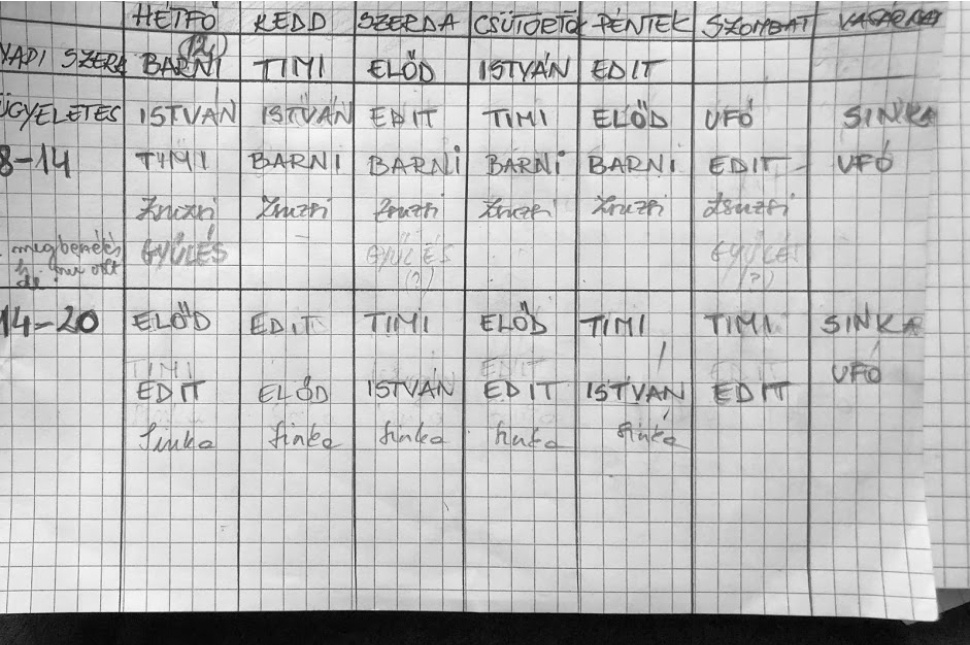 HÉTFŐ KEDD SZERDA CSÜTÖRTÖK PÉNTEK SZOMBAT
(12)
BARNI TIMI ELŐD ISTVÁN EDIT
ÜGYELETES ISTVÁN ISTVÁN EDIT TIMI ELŐD UFÓ SINKA
8-14 TIMI BARNI BARNI BARNI BARNI EDIT UFÓ
Zsuzsi Zsuzsi Zsuzsi Zsuzsi Zsuzsi Zsuzsi
GYŰLÉS GYŰLÉS GYŰLÉS
(?) (?)
14-20 ELŐD EDIT TIMI ELŐD TIMI TIMI SINKA
TIMI EDIT
EDIT ELŐD ISTVÁN EDIT ISTVÁN EDIT UFÓ
Sinka Sinka Sinka Sinka Sinka